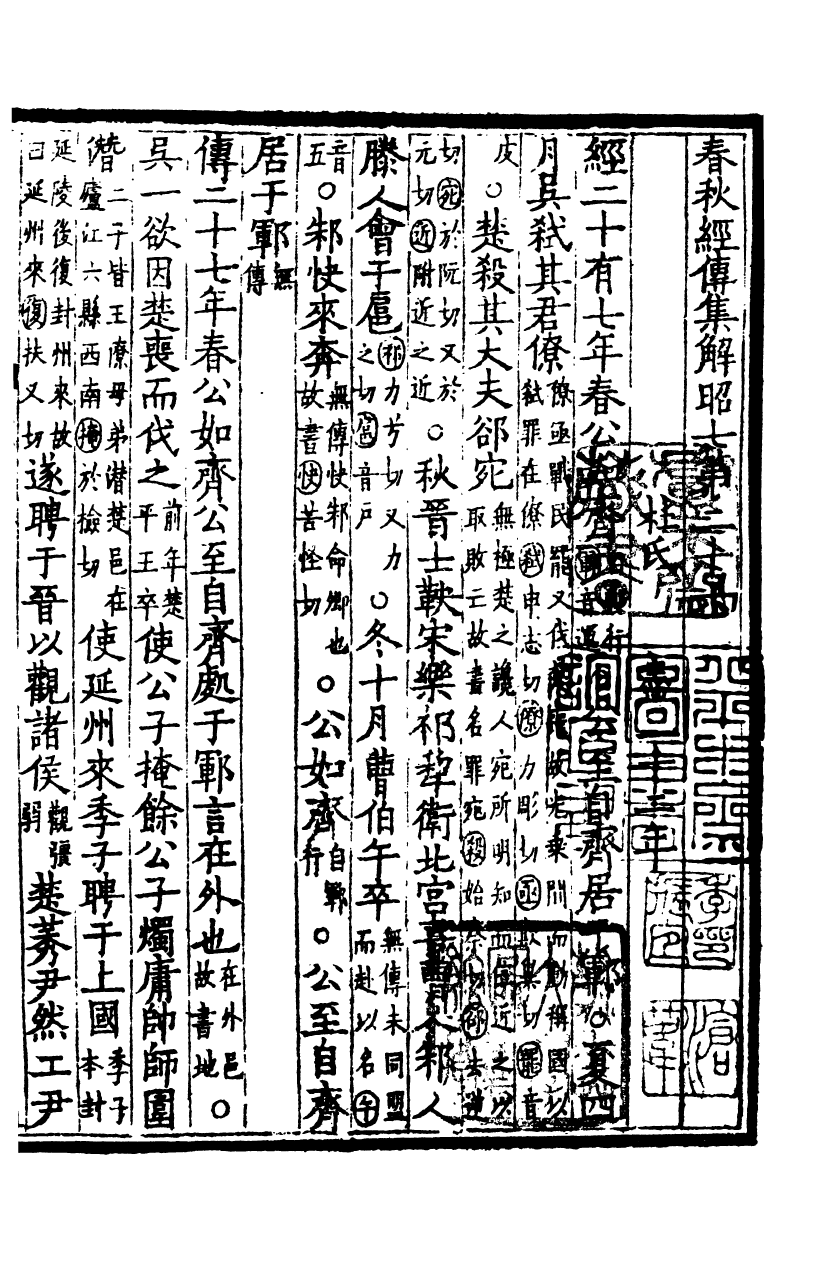 春秋經傳集解昭七第二十六
杜氏
經二十有七年春公如齊公至自齊居于鄆○夏四
月吳弒其君僚僚亟戰民罷又伐楚喪故光乘間而動稱國以弒罪在僚弒申志切僚力彫切亟欺冀切罷音
皮○楚殺其大夫郤宛無極楚之讒人宛所明知而信近之以取敗亡故書名罪宛殺始察切郤去逆
切宛於阮切又於元切近附近之近○秋晉士鞅宋樂祁犂衛北宮喜曹人邾人
滕人會于扈祁力兮切又力之切扈音戶○冬十月曹伯午卒無傳未同盟而赴以名午
音五○邾快來奔無傳快邾命卿也故書快苦怪切○公如齊自鄆行○公至自齊
居于鄆無傳
傳二十七年春公如齊公至自齊處于鄆言在外也在外邑故書地○
吳一欲因楚喪而伐之前年楚平王卒使公子掩餘公子燭庸帥師圍
潛二子皆王僚母弟潛楚邑在廬江六縣西南掩於檢切使延州來季子聘于上國季子本封
延陵後復封州來故曰延州來復扶又切遂聘于晉以觀諸侯觀彊弱楚莠尹然工尹